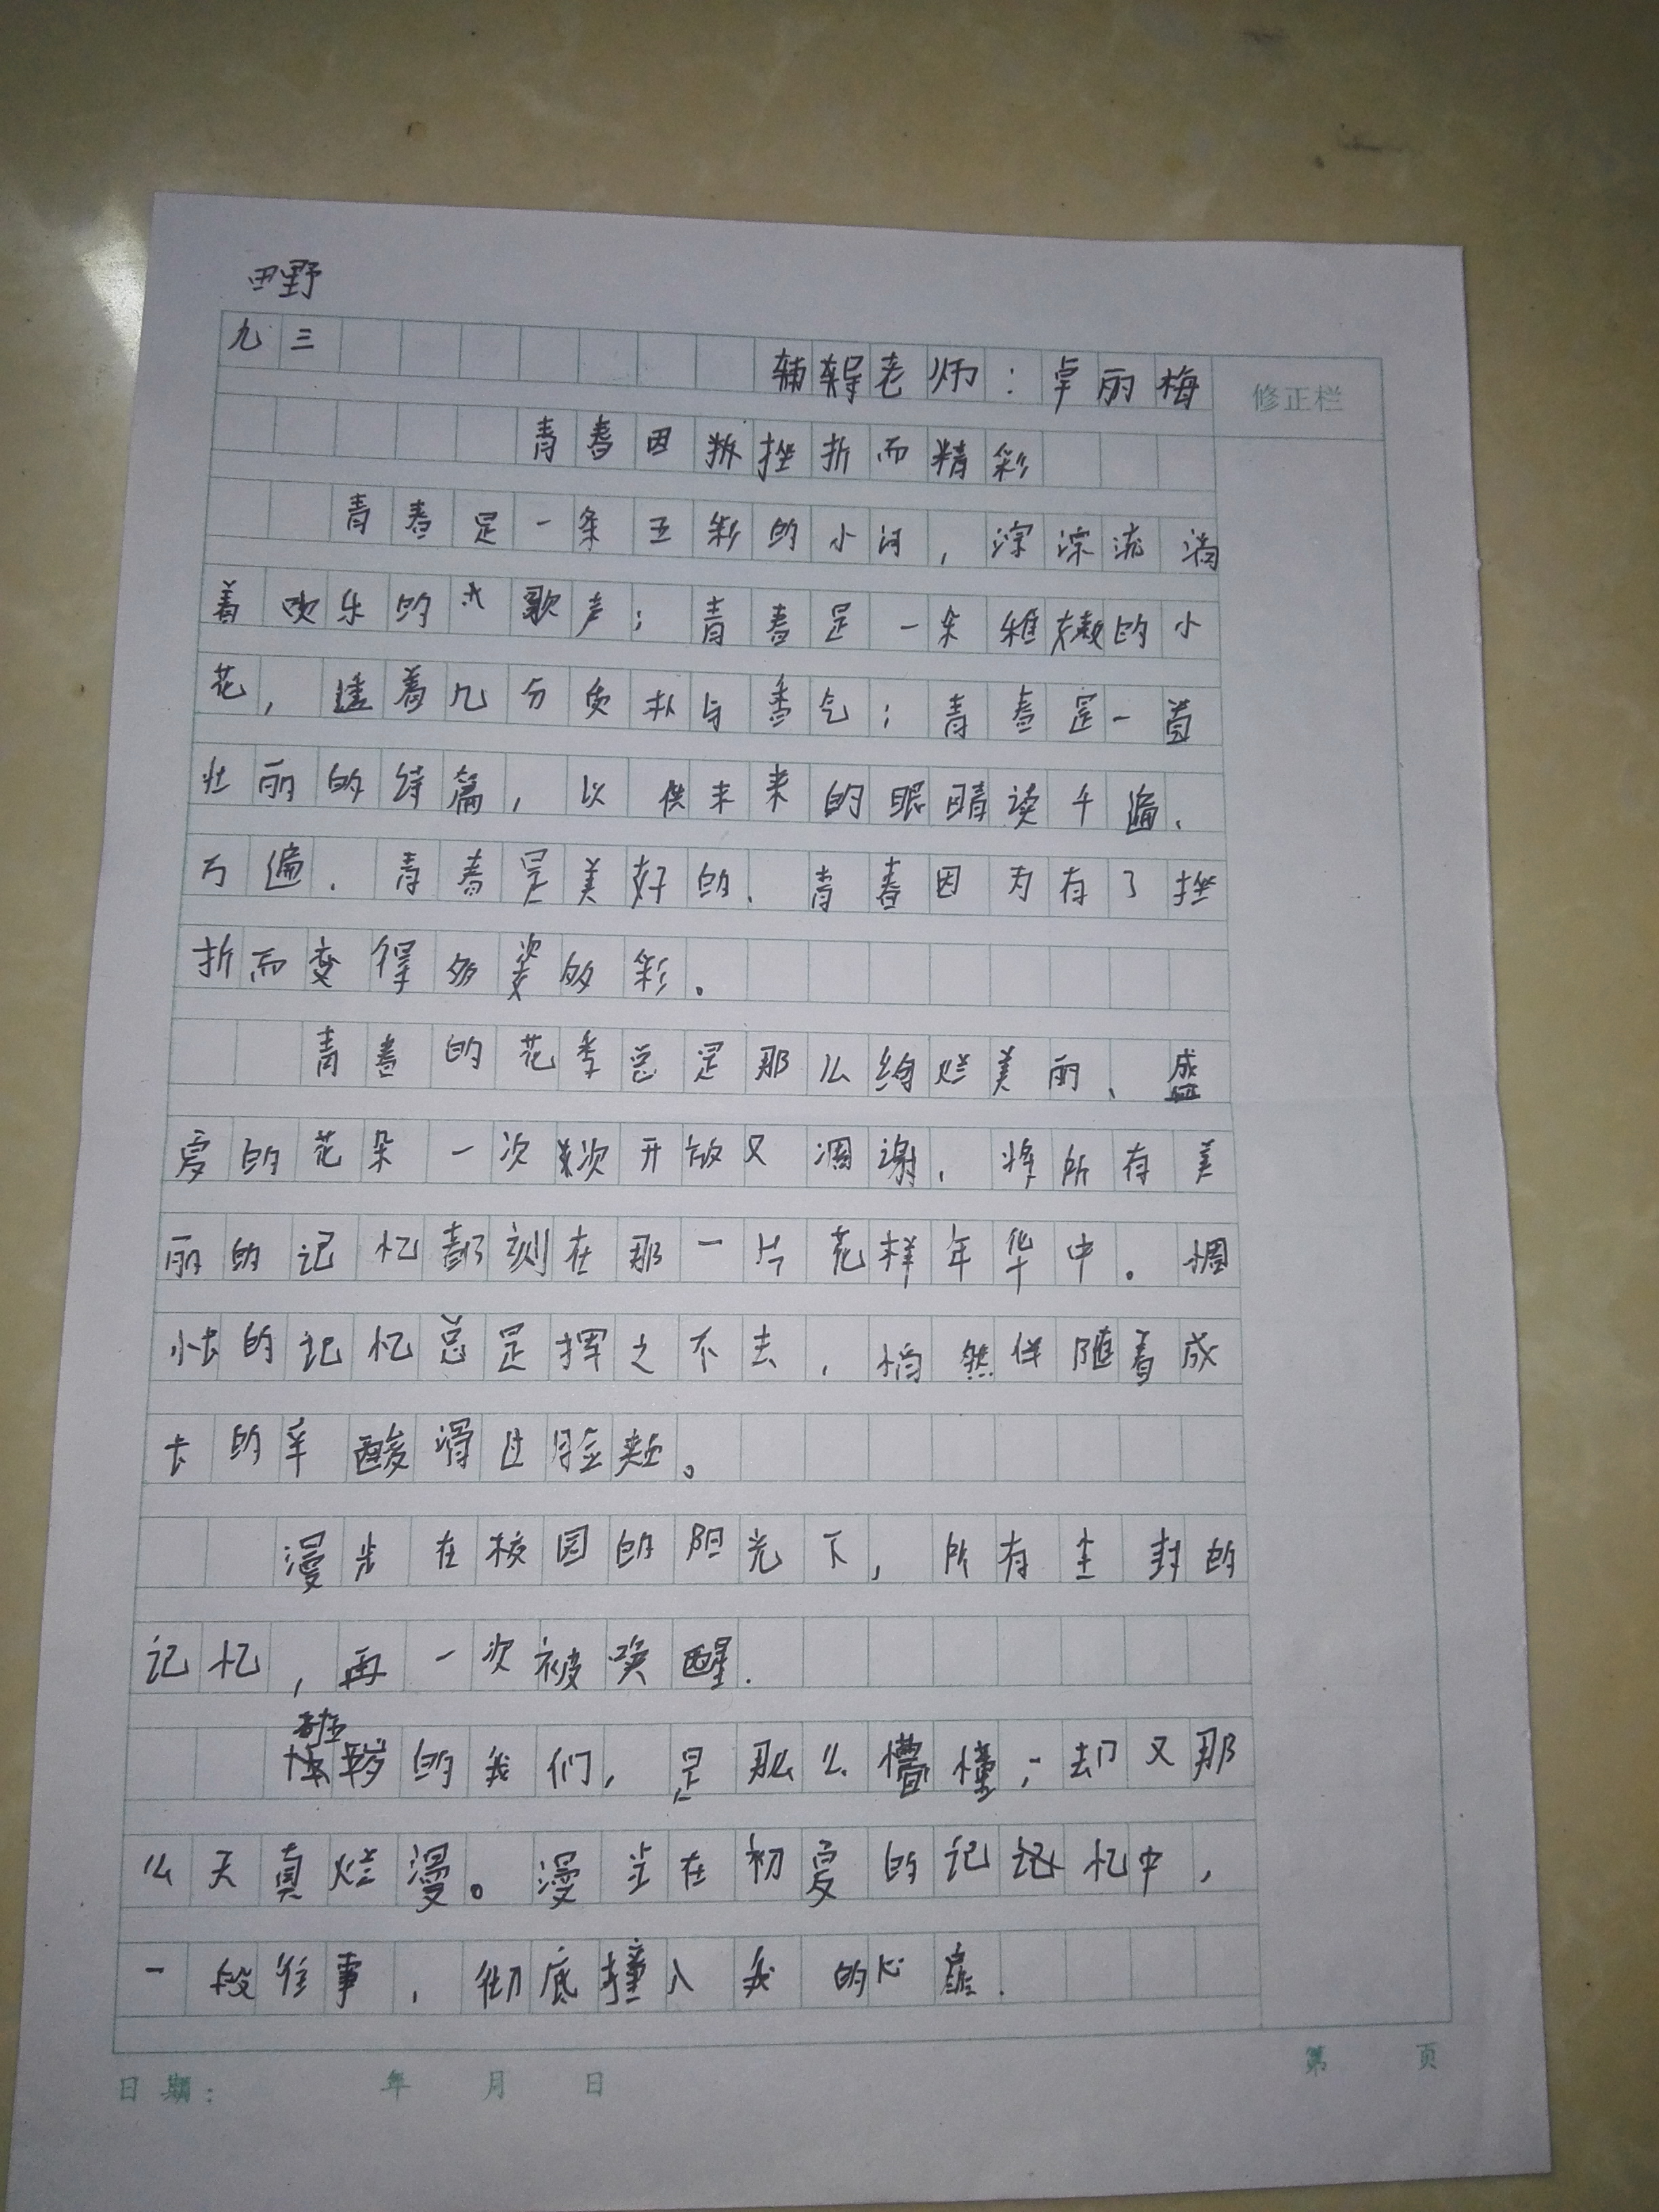 田野
九三 辅导老师:卓丽梅
修正栏
青春因挫折而精彩
青春是一条五彩的小河,淙淙流淌
着欢乐的歌声;青春是一朵稚嫩的小
花,透着几分质朴与香气;青春是一首
壮丽的诗篇,以供未来的眼睛读千遍、
万遍.青春是美好的.青春因为有了挫
折而变得多姿多彩。
青春的花季总是那么绚烂美丽、盛
夏的花朵一次次开放又凋谢.将所有美
丽的记忆都刻在那一片花样年华中。惆
怅的记忆总是挥之不去,悄然伴随着成
长的辛酸滑过脸颊。
漫步在校园的阳光下,所有尘封的
记忆,再一次被唤醒.
的我们,是那么懵懂,却又那
么天真烂漫。漫步在初夏的记忆中,
一段往事,彻底撞入我的心扉.
日期: 年 月 日
第 页